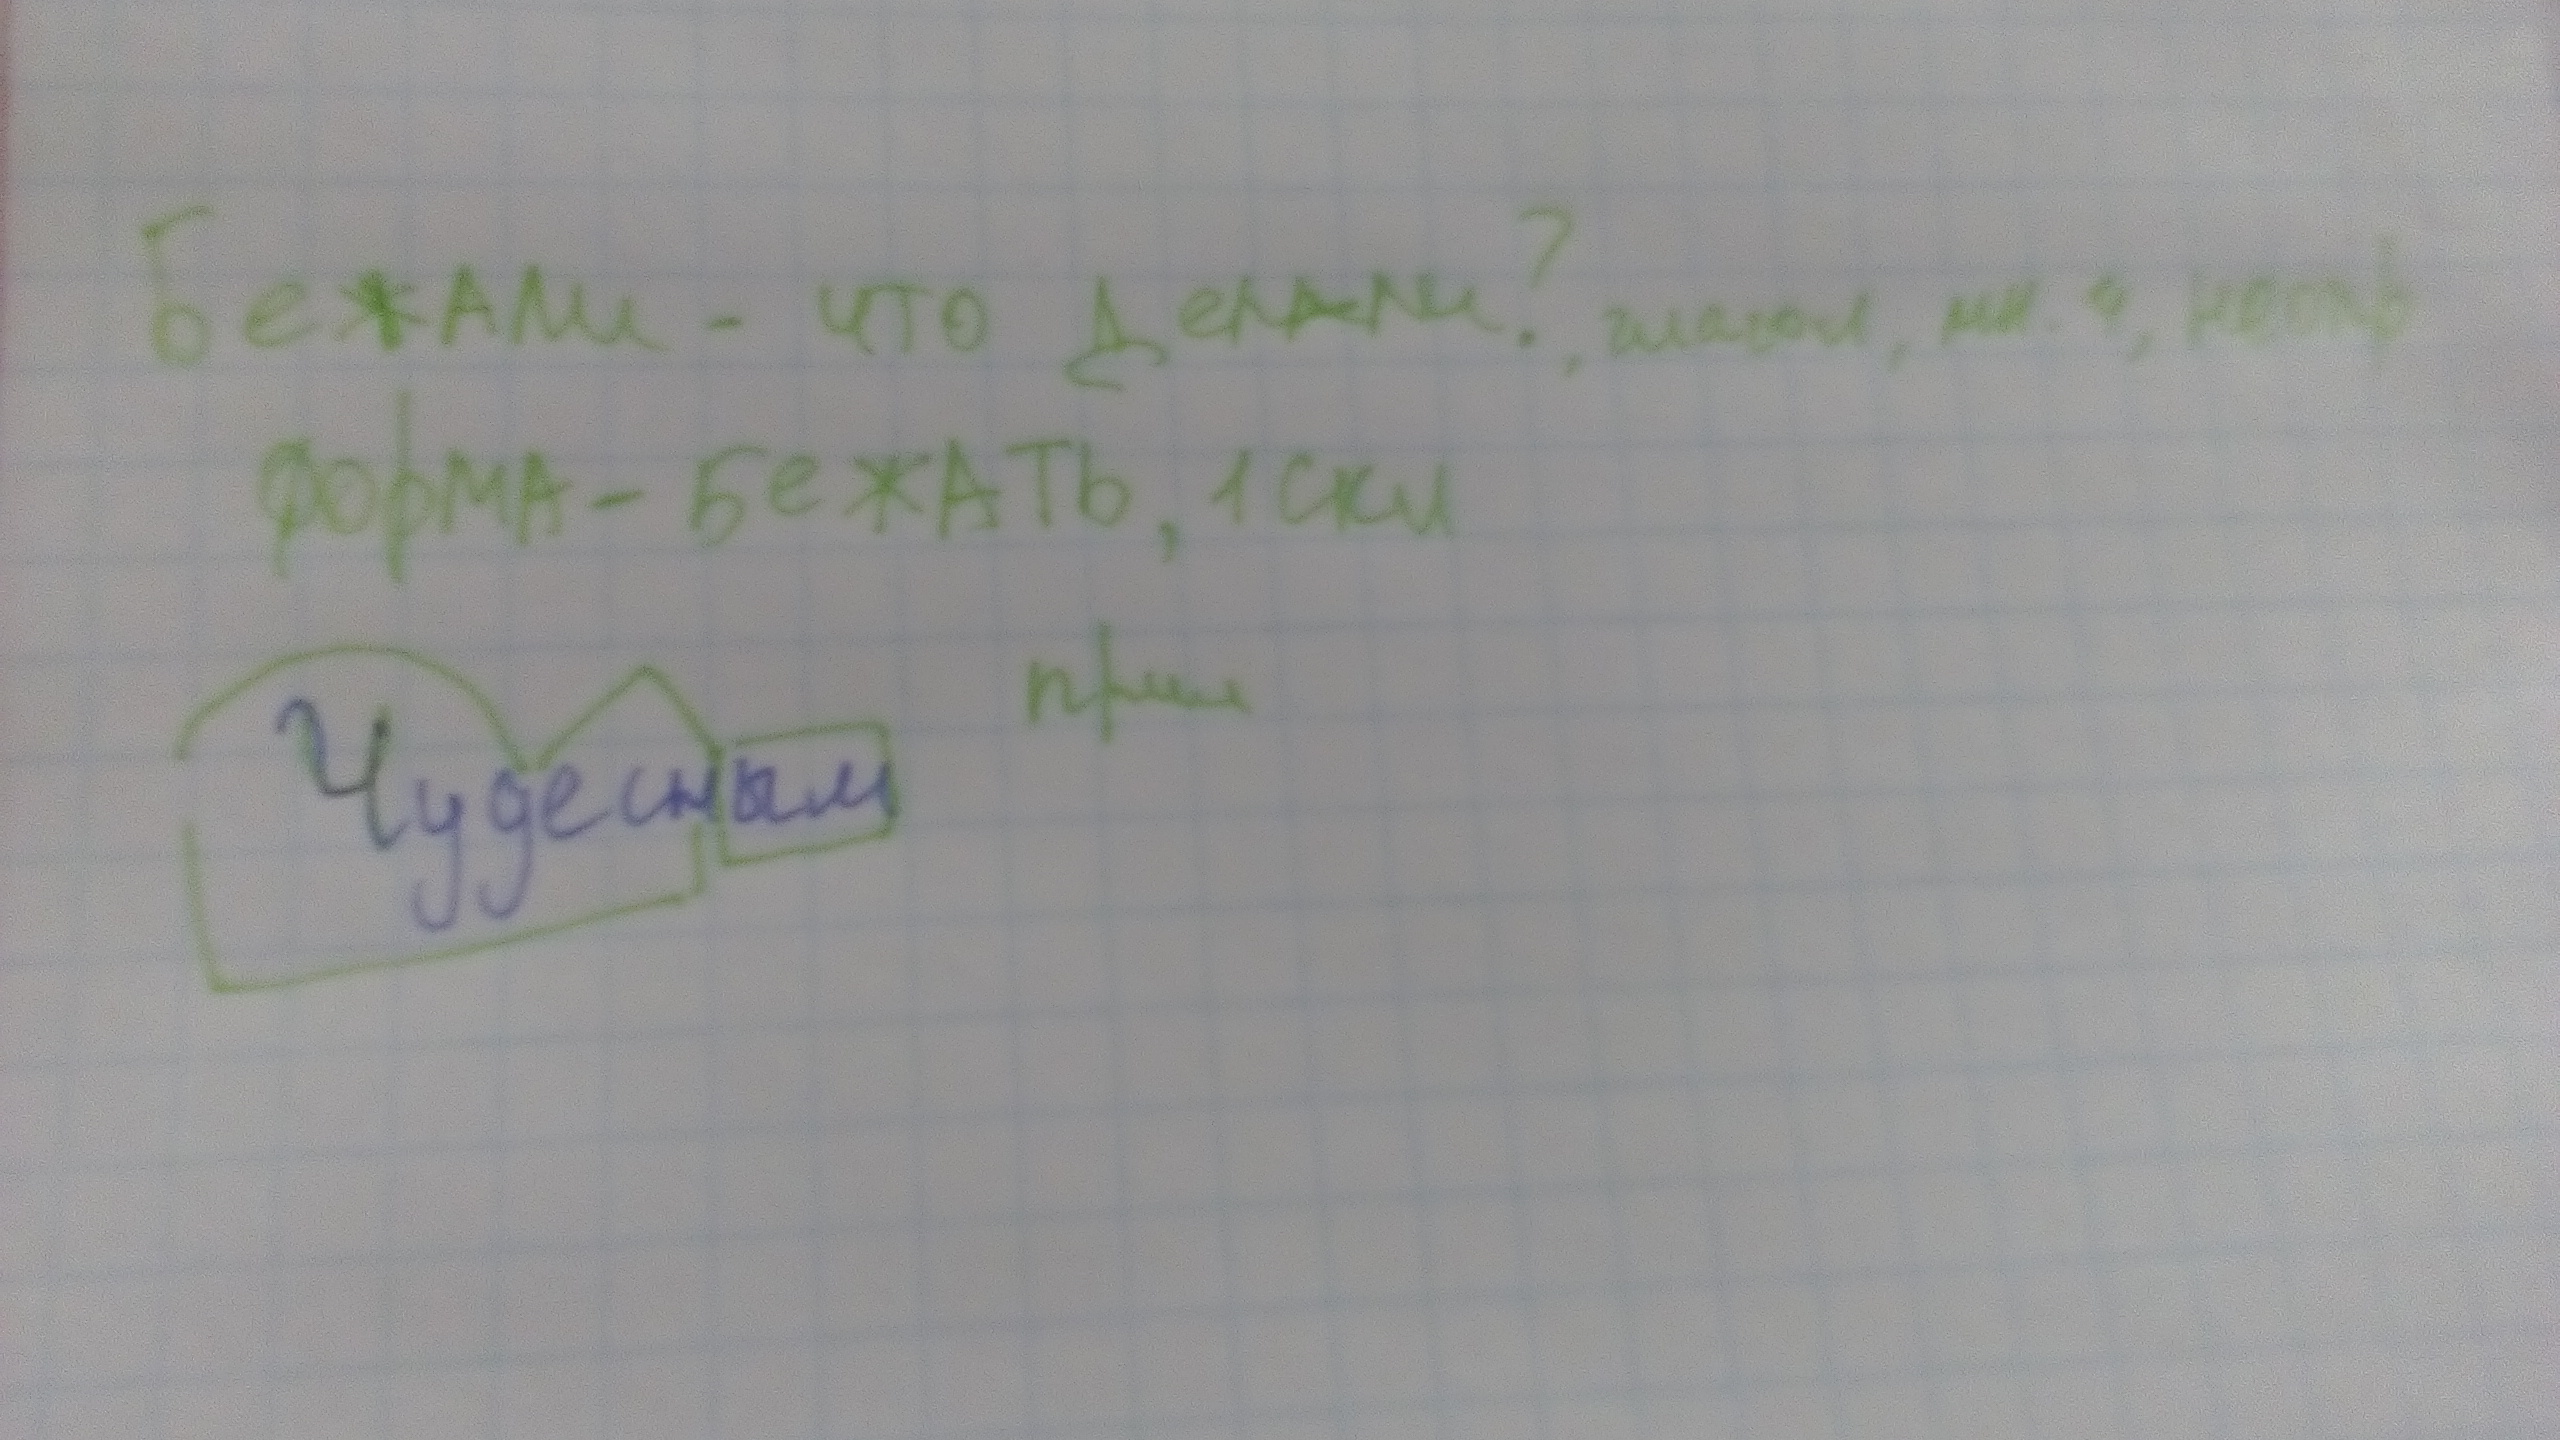 Бежали - что делали?, глагол, мн. ч,
форма - бежать, 1 скл
прил
Чудесным